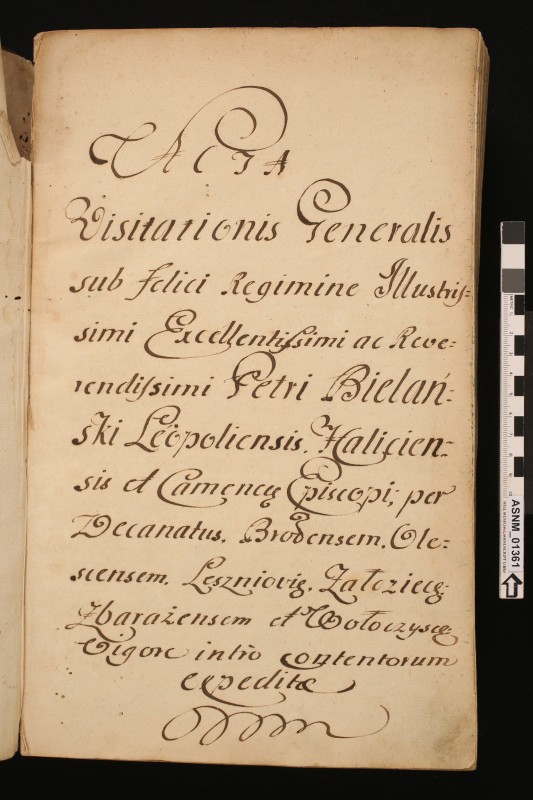 ACTA
Visitationis Generalis
sub felici Regimine Illustris-
simi Excellentissimi ac Reve-
rendissimi Petri Bielań-
ski Leopoliensis, Halicien-
sis et Camenec Episcopi, per
Decanatus, Brodensem, Ole-
scensem, Leszniovig, Załoziecg
Zbarażensem et Wołoczyscg
Vigore intro contentorum
expeditæ
ASNM_01361